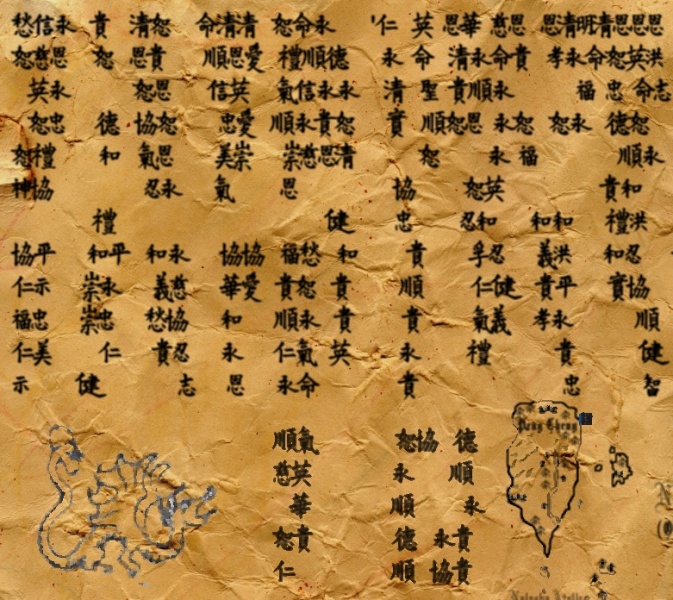 愁信永 貴 清恕 命清清 恕命永 仁 英 恩華 慈恩 恩清明清恩恩恩
恕慈恩 恕 恩貴 順恩愛 禮順德 永 命 清永命貴 孝永命恕英洪
英永 恕恩 信英 氣信永永 清 聖 貴順永 福 忠 命志
恕忠 德 協恕 忠愛 順永貴恕 貴 順恕恩 永恕 恕永 德恕
恕禮 和 氣恩 美崇 崇慈恩清 恕 永 福 順永
神協 忍永 氣 恩 協 恕英 貴和
禮 健 忠 忍和 和和 禮洪
協平 和平 和永 協協 福愁 和 貴 孚忍 義洪 和忍
仁示 崇永 義慈 華愛 貴恕 貴 順 仁健 貴平 寶協
福忠 崇忠 愁協 和 順永 貴 貴 氣義 孝永 順
仁美 仁 貴忍 永 仁氣 英 永 禮 貴 健
示 健 志 恩 永命 貴 忠 智
順氣 恕協 德
慈英 永 順
華 順 永
恕貴 德 永貴
仁 順 永協貴
Peng Cheng